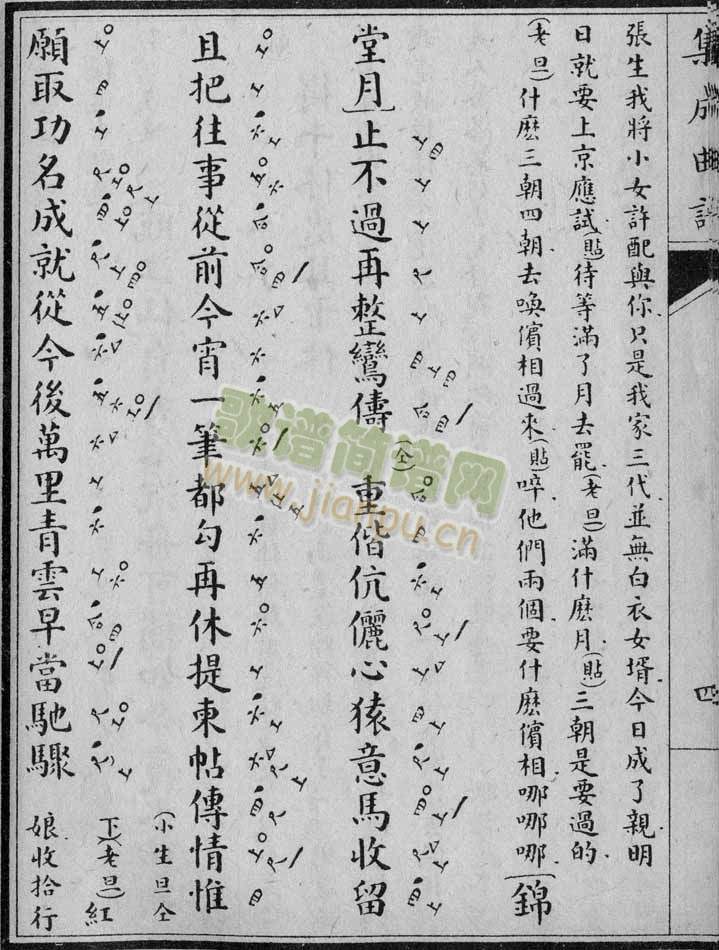 集成曲譜
四
張生我將小女許配與你只是我家三代並無白衣女壻今日成了親明
日就要上京應試(貼)待等滿了月去罷(老旦)滿什麽月(貼)三朝是要過的
(老旦)什麽三朝四朝去喚儐相過來(貼)啐他們兩個要什麽儐相哪哪哪錦
堂月止不過再整鸞儔(仝)重偕伉儷心猿意馬收留
且把往事從前今宵一筆都勾再休提柬帖傳情惟
願取功名成就從今後萬里青雲早當馳驟
(小生旦仝
下)(老旦)紅
娘收拾行
歌谱简谱网
www.jianpu.cn